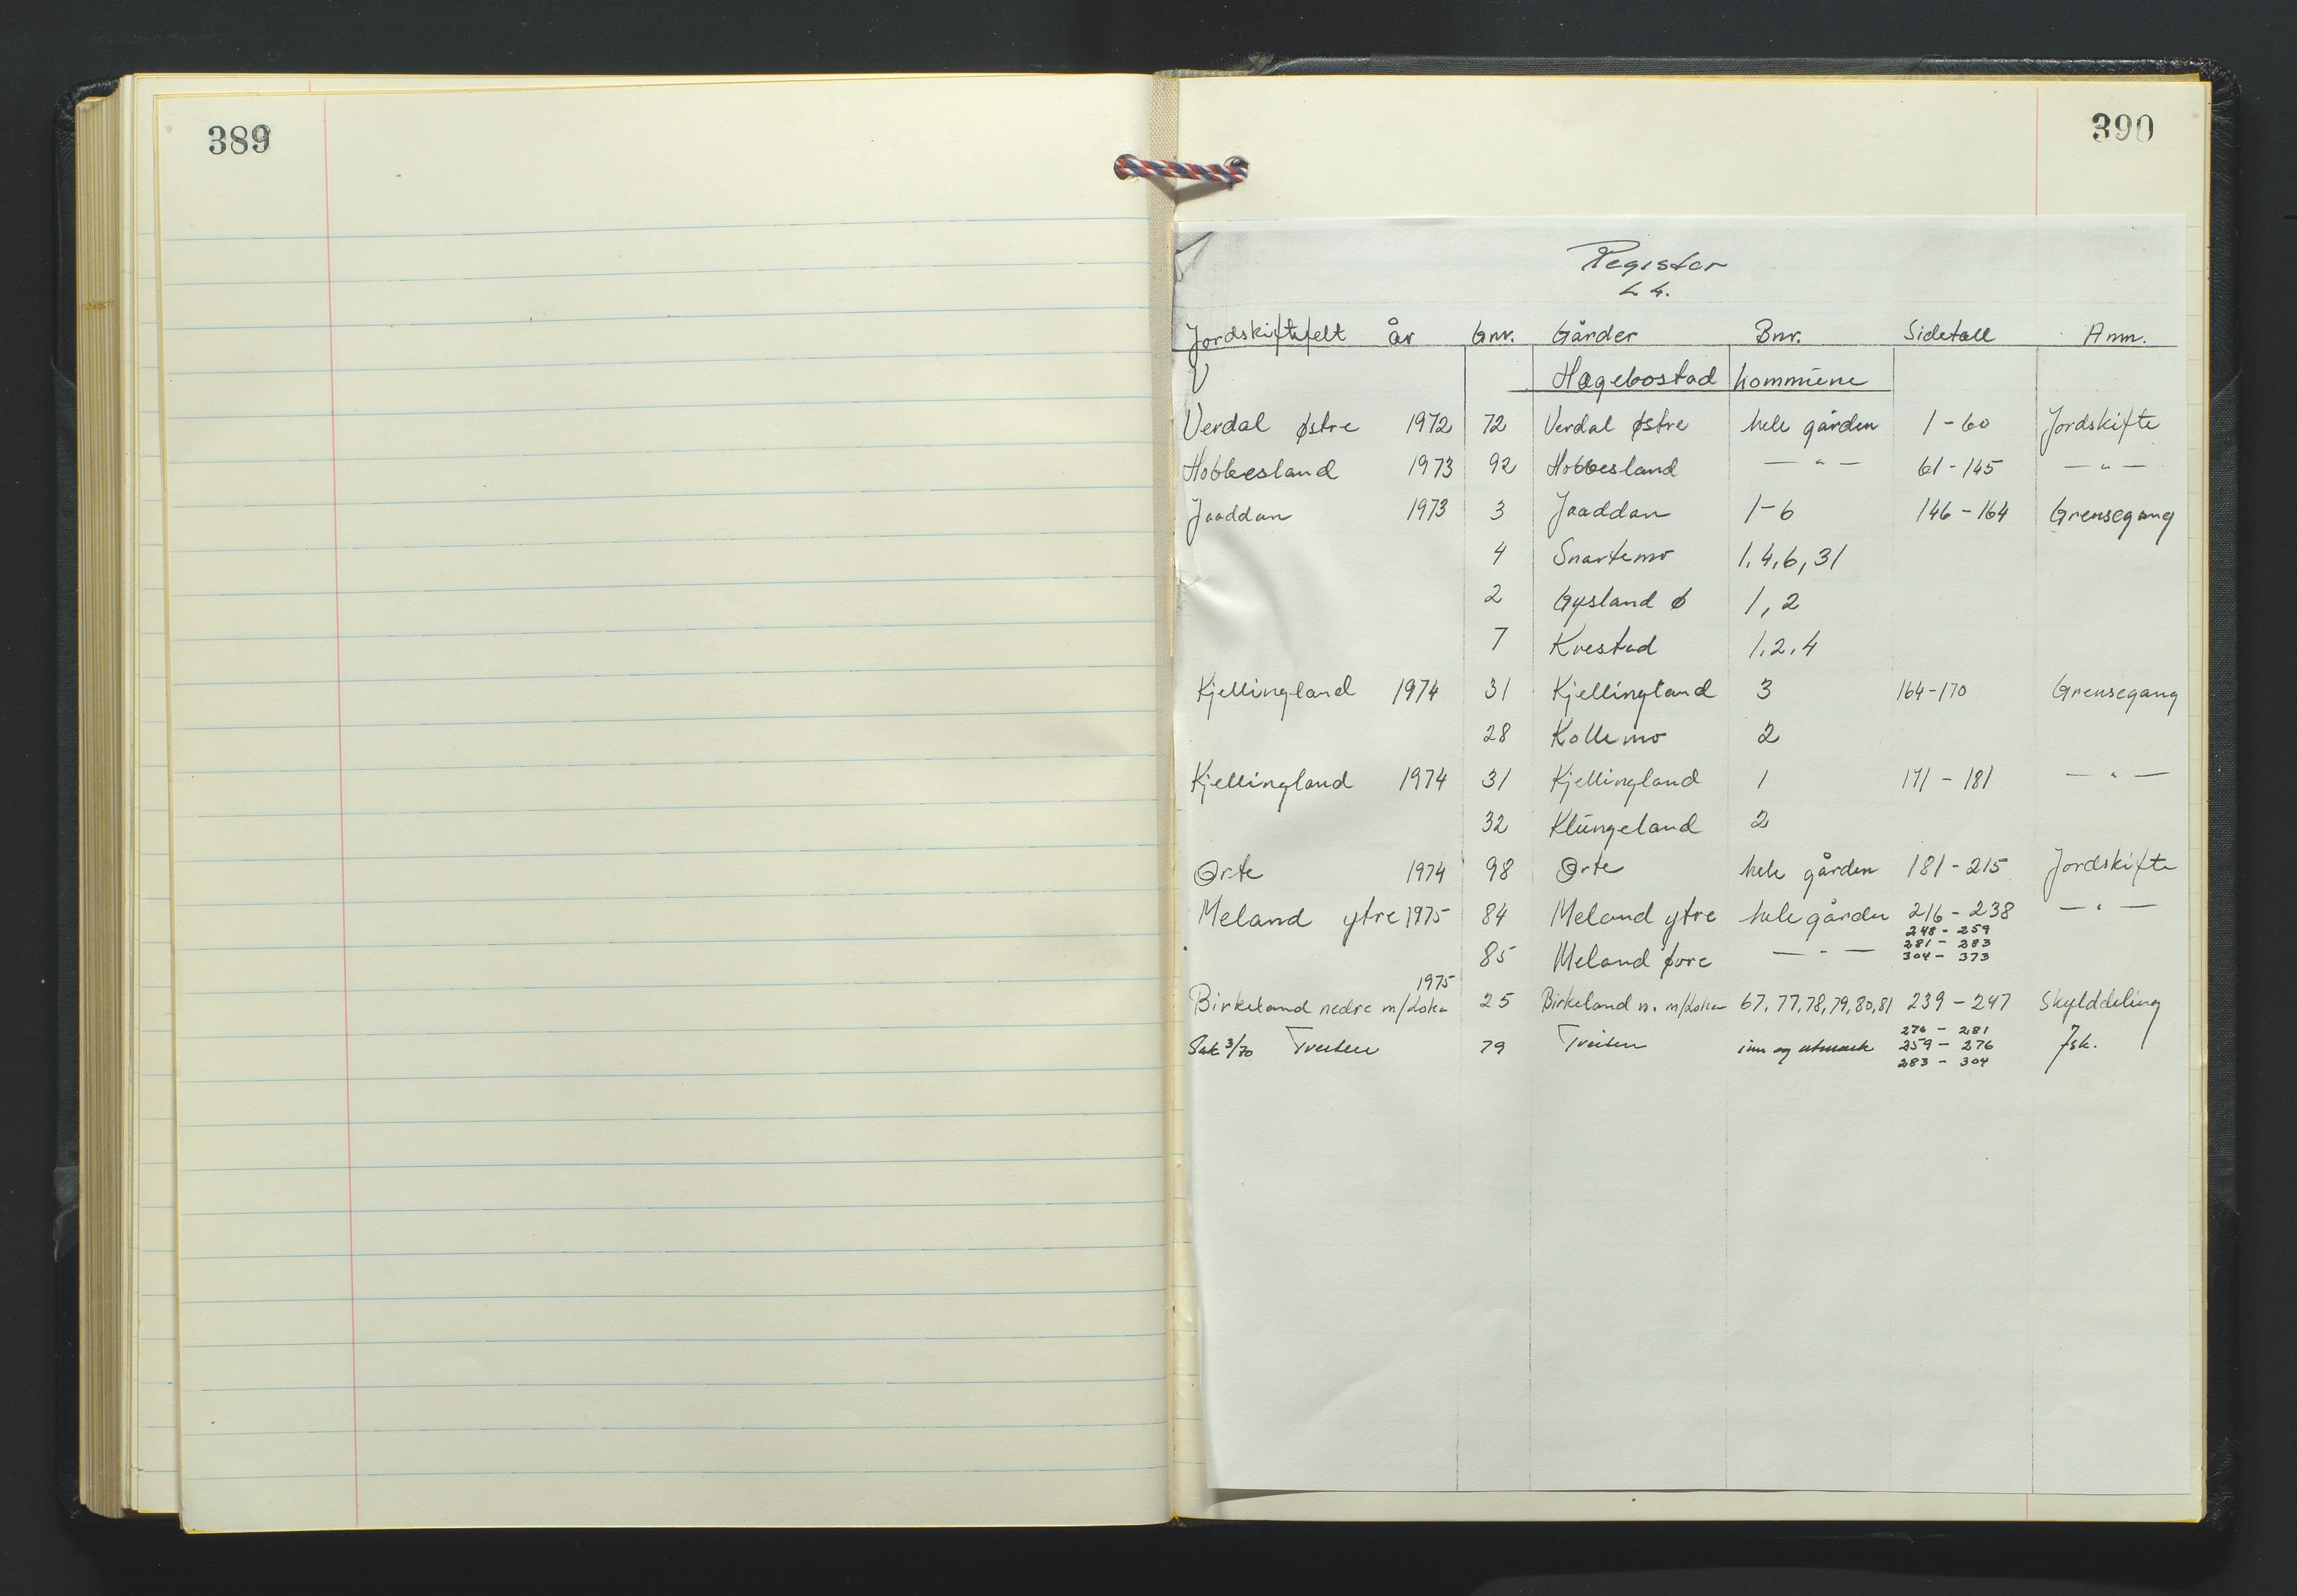 389
390
Register
L 4.
Jordskiftefelt år Gnr. Gårder Bnr. Sidetall Anm.
Hægebostad kommune
Verdal østre 1972 72 Verdal østre hele gården 1-60 Jordskifte
Hobbesland 1973 92 Hobbesland — " — 61-145 — " —
Jaaddan 1973 3 Jaaddan 1-6 146-164 Grensegang
4 Snartemo 1,4,6,31
2 Gysland ø 1,2
7 Kvestad 1,2,4
Kjellingland 1974 31 Kjellingland 3 164-170 Grensegang
28 Kollemo 2
Kjellingland 1974 31 Kjellingland 1 171-181 — " —
32 Klungeland 2
Orte 1974 98 Orte hele gården 181-215 Jordskifte
Meland ytre 1975 84 Meland ytre hele gården 216-238 — " —
248-259
281-283
85 Meland øvre — " — 304-373
1975
Birkeland nedre m/Loka 25 Birkeland n. m/Loka 67,77,78,79,80,81 239-247 Skylddeling
276-281
Sak 3/70 Tveiten 79 Tveiten inn og utmark 259-276 Jsk.
283-304